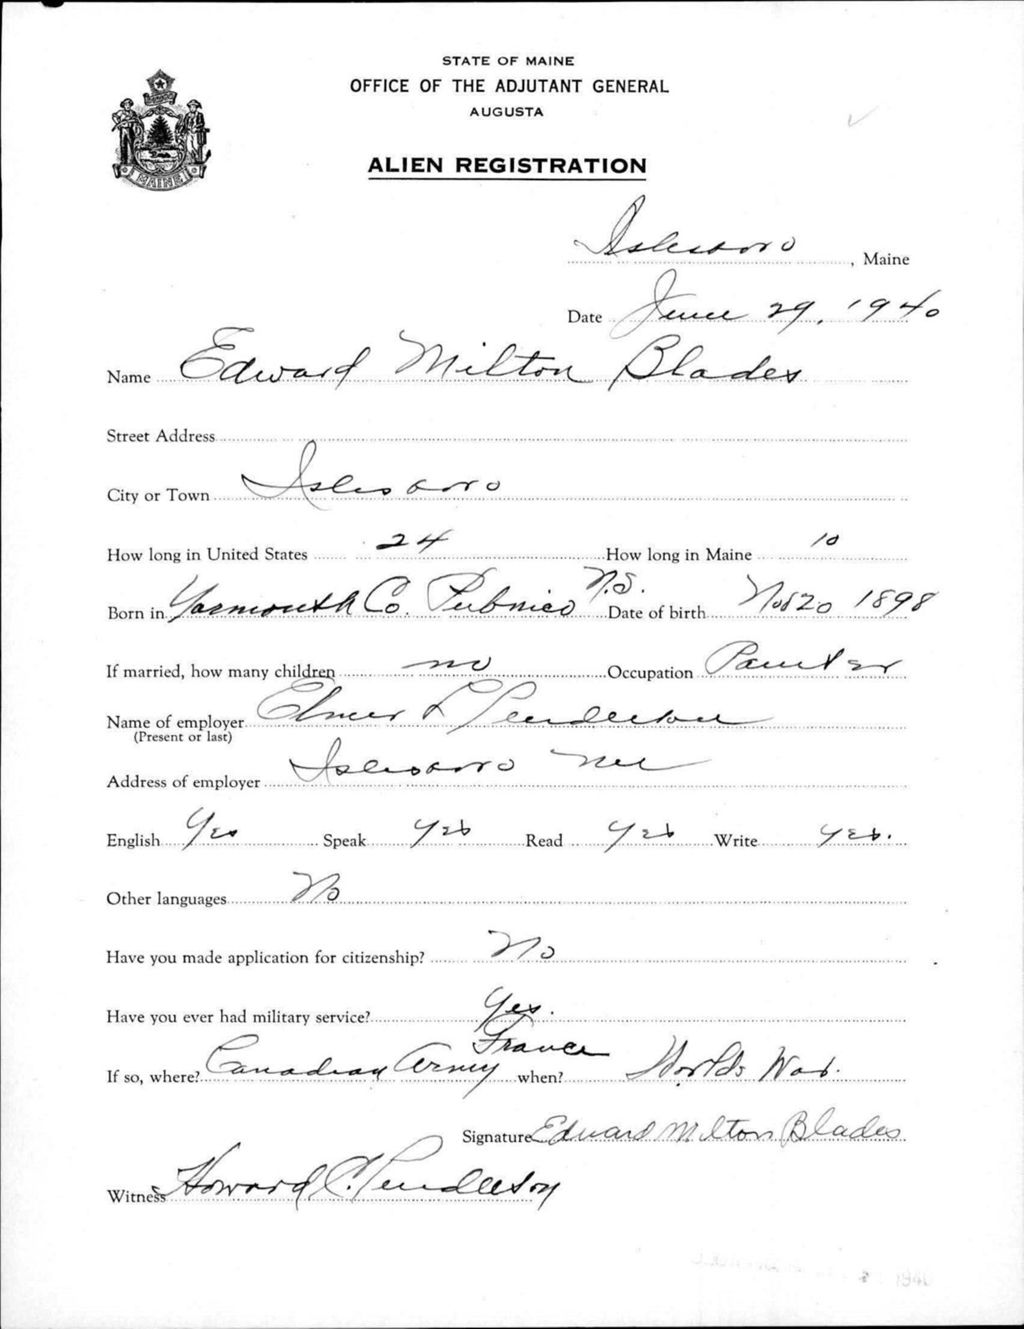 STATE OF MAINE
OFFICE OF THE ADJUTANT GENERAL
AUGUSTA
ALIEN REGISTRATION
MAINE
Islesboro, Maine
Date June 29, 1940
Name Edward Milton Blades
Street Address
City or Town Islesboro
How long in United States 24 How long in Maine 10
Born in Yarmouth Co. Pubnico N.S. Date of birth Nov 20 1898
If married, how many children no Occupation Painter
Name of employer Elmer L Pendleton
(Present or last)
Address of employer Islesboro Me
English Yes Speak Yes Read Yes Write Yes.
Other languages No
Have you made application for citizenship? No
Have you ever had military service? Yes.
If so, where? Canadian Army France when? Worlds War.
Signature Edward Milton Blades
Witness Howard C. Pendleton